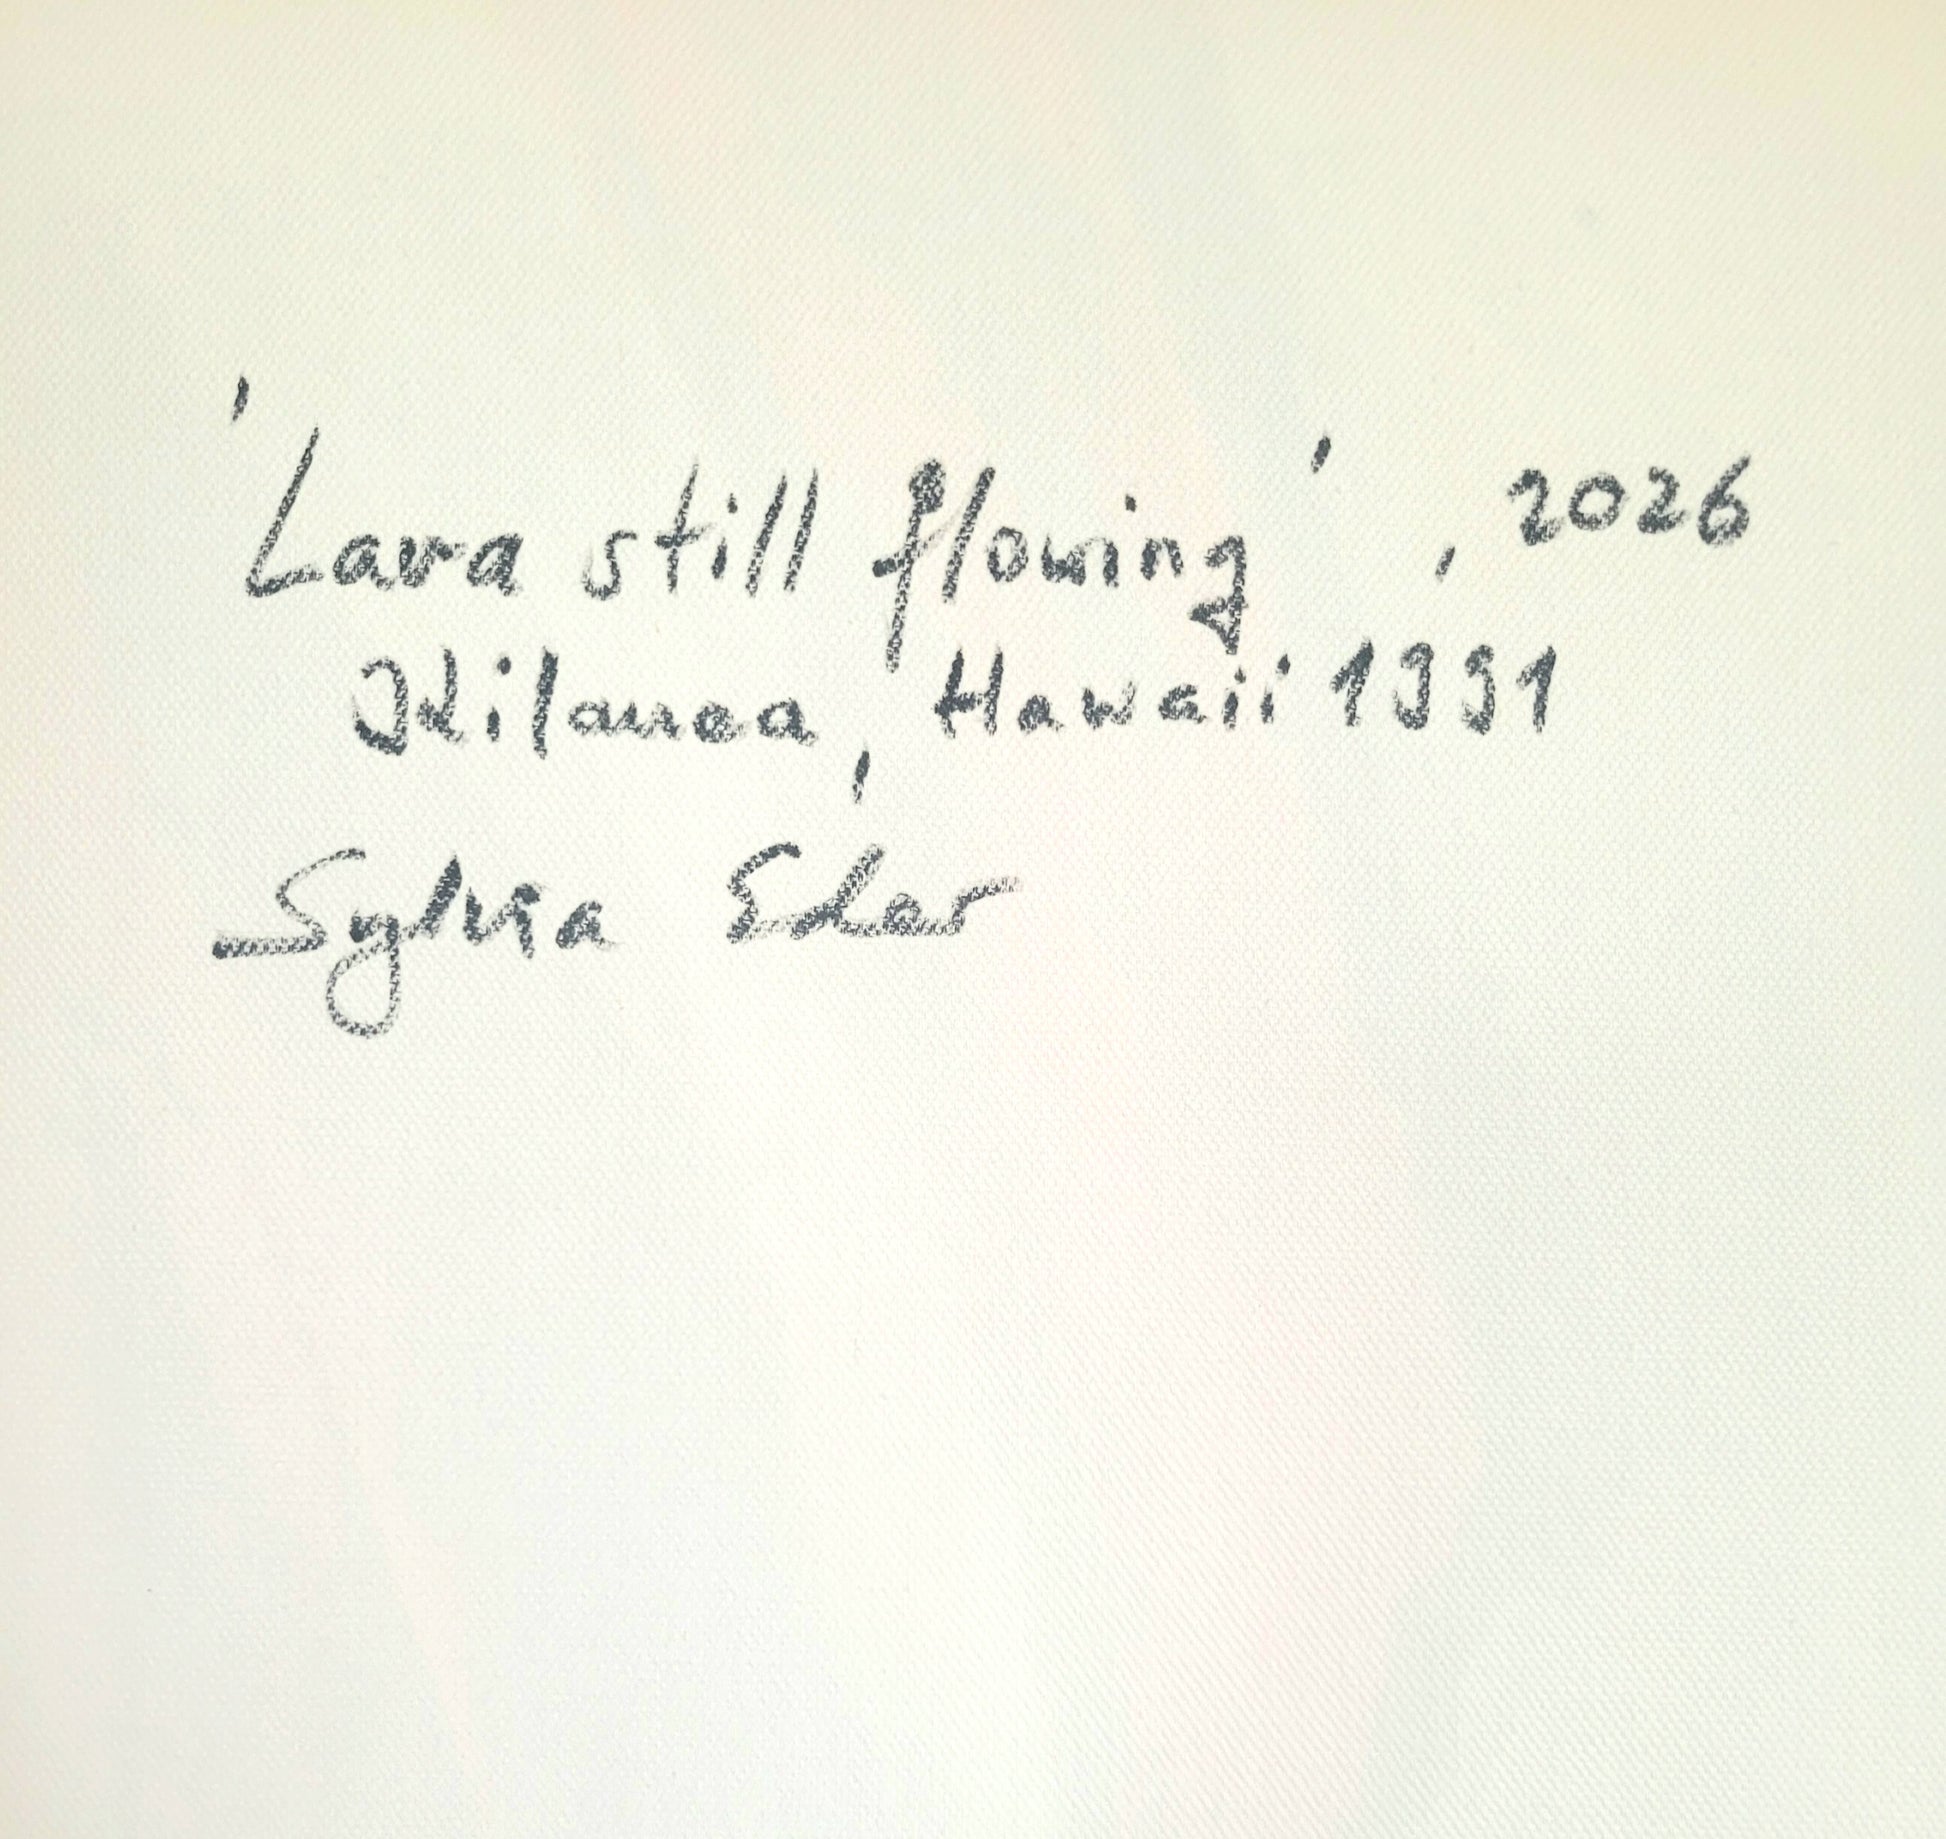 'Lava still flowing', 2026
Kilauea, Hawaii 1991
Sylvia